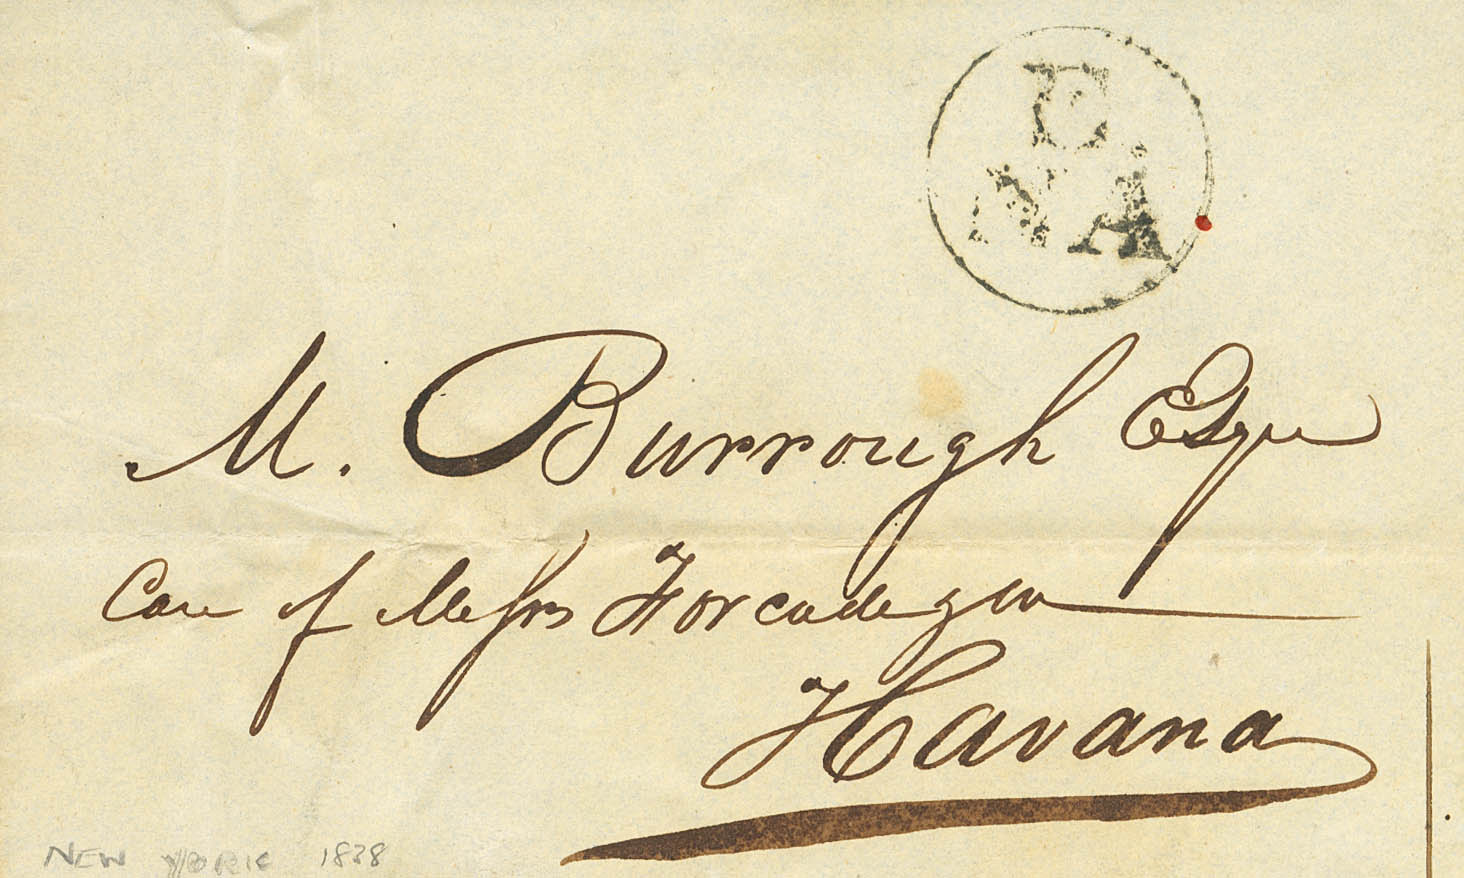 E.
NA
M. Burrough Esqre
Care of Messrs Forcade & Co
Havana
NEW YORK 1838